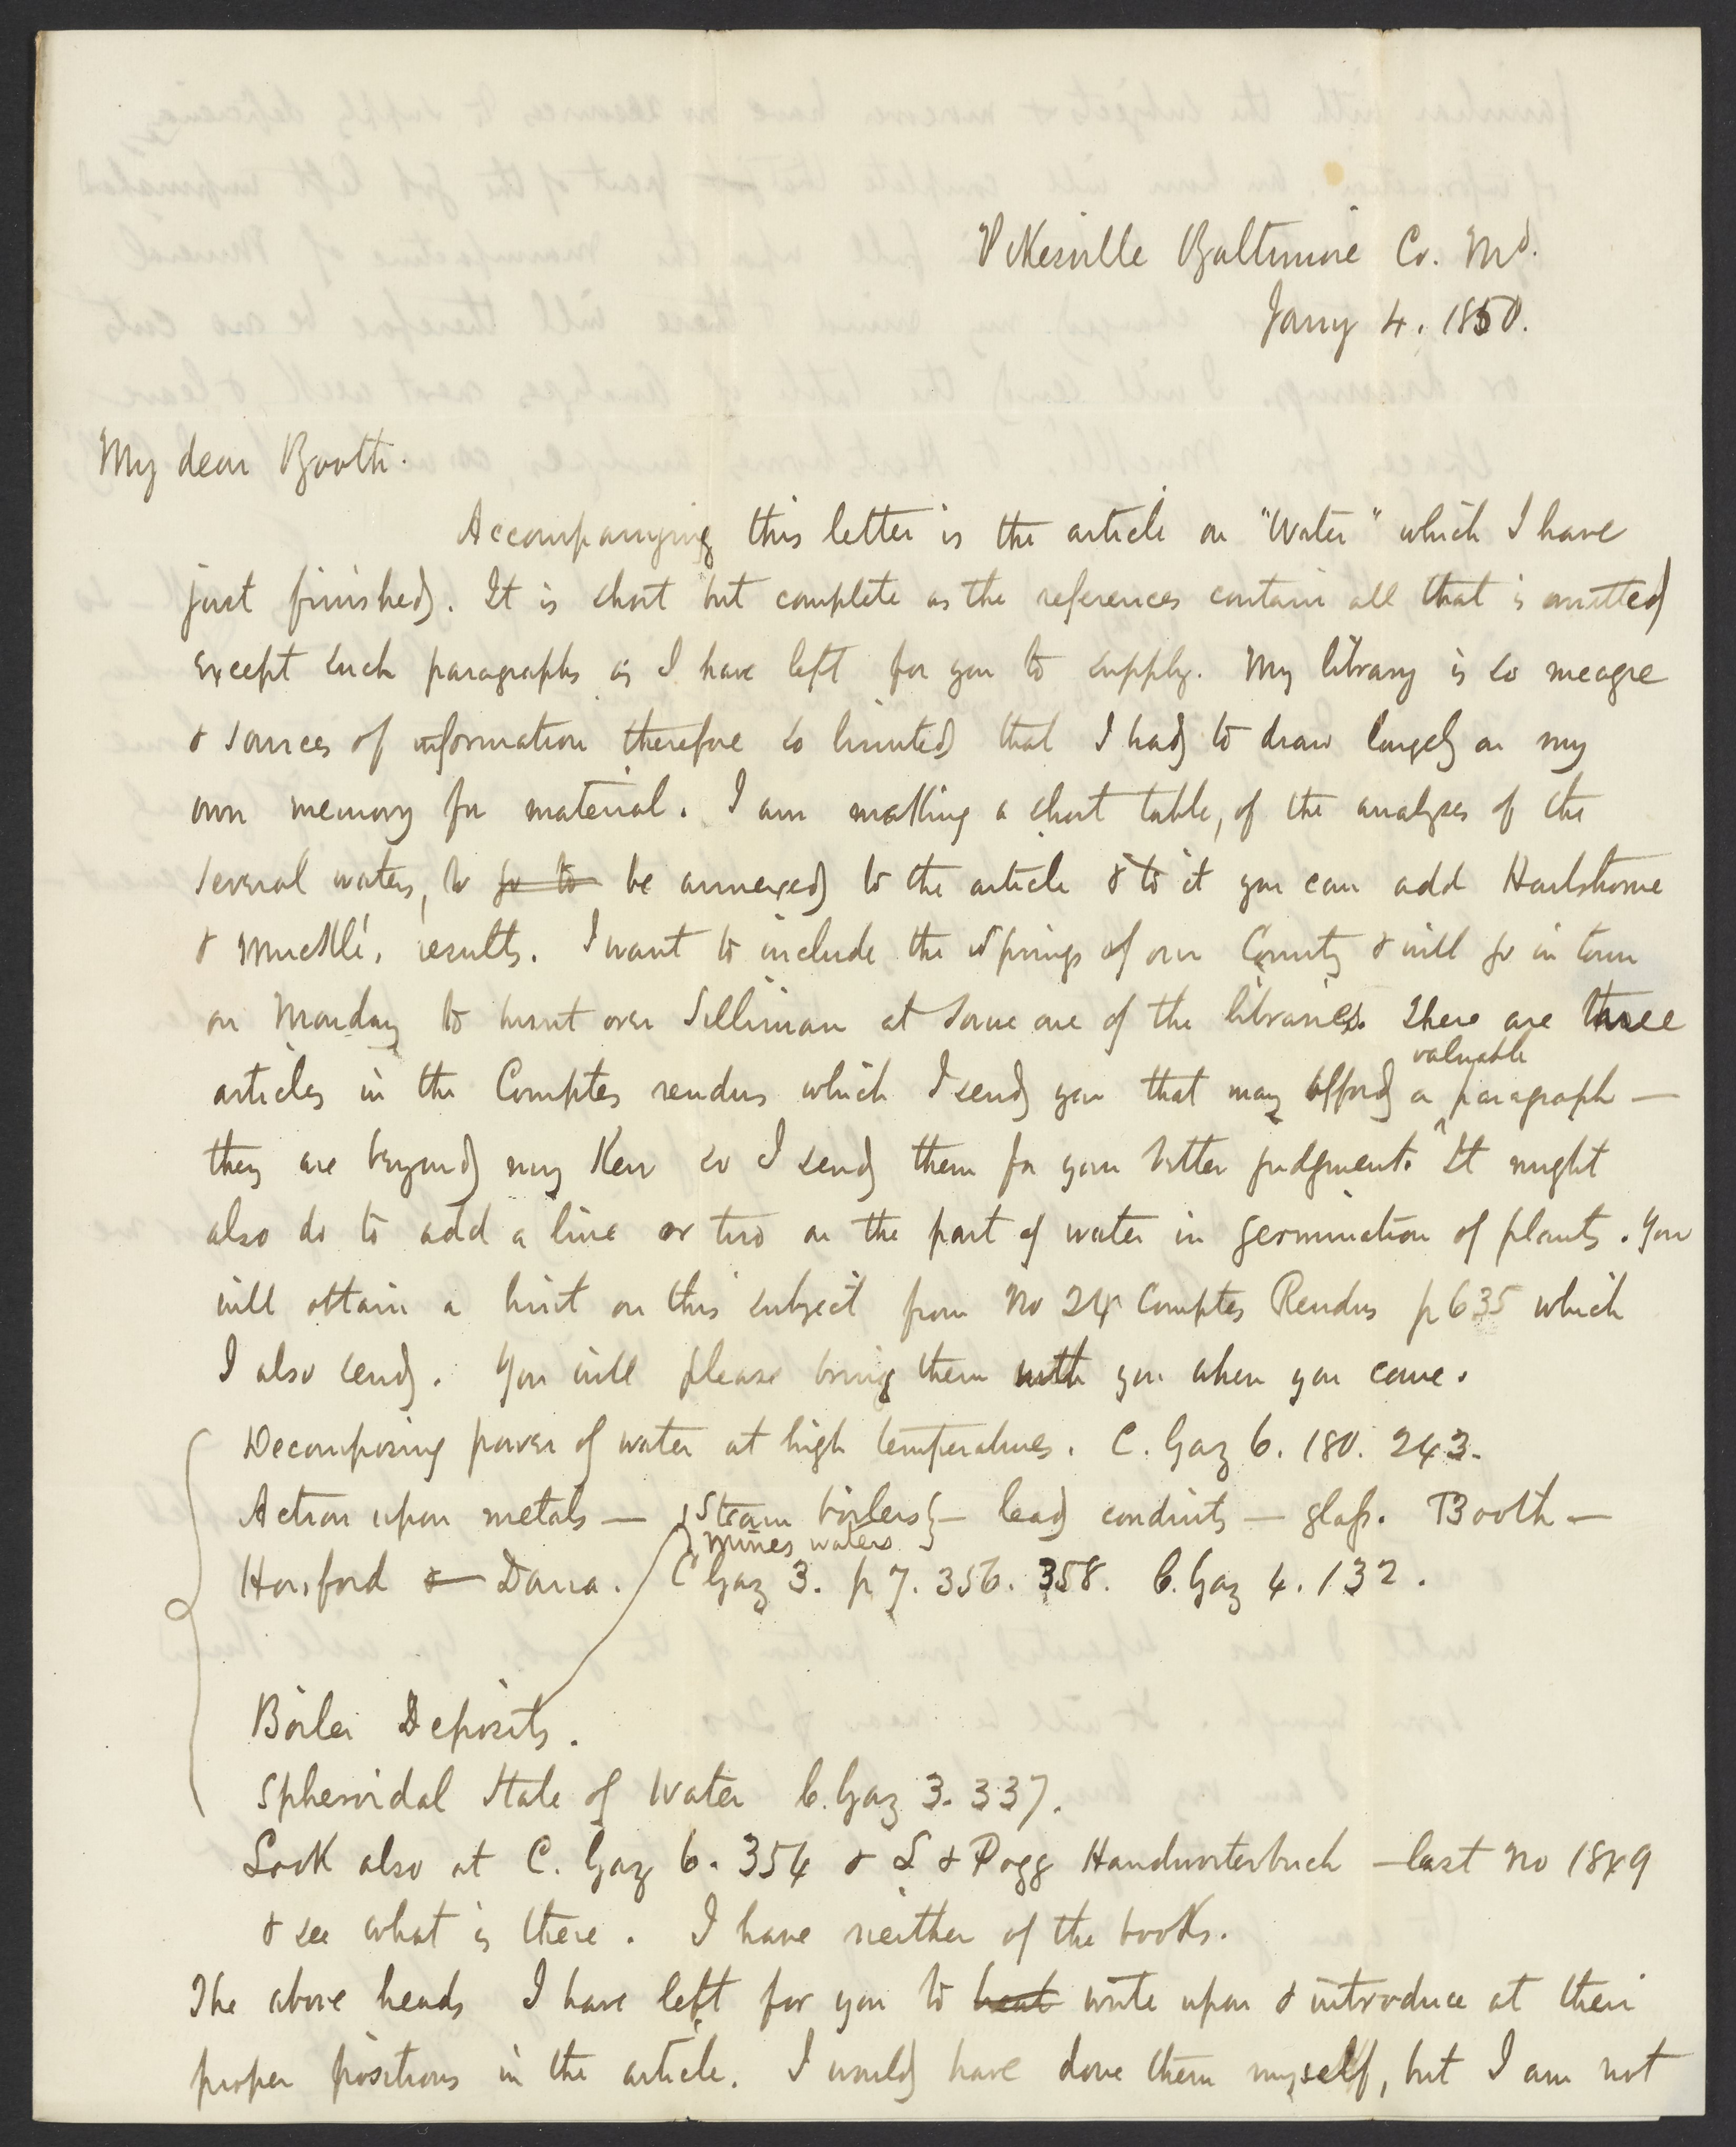 Pikesville Baltimore Co. Md.
Jany 4. 1850.
My dear Booth.
Accompanying this letter is the article on "Water" which I have
just finished. It is short but complete as the references contain all that is omitted
except such paragraphs as I have left for you to supply. My library is so meagre
& sources of information therefore so limited that I had to draw largely on my
own memory for material. I am making a short table, of the analyses of the
several waters, to go to be annexed to the article & to it you can add Hartshorne
& Muckle's results. I want to include the Springs of our County & will go in town
on Monday to hunt over Silliman at some one of the libraries. There are three
valuable
articles in the Comptes rendus which I send you that may afford a paragraph —
they are beyond my Ken so I send them for your better judgment. It might
also do to add a line or two on the part of water in germination of plants. You
will obtain a hint on this subject from No 24 Comptes Rendus p 635 which
I also send. You will please bring them with you when you come.
Decomposing power of water at high temperatures. C. Gaz 6. 180. 243.
Action upon metals — Steam boilers — lead conduits — glass. Booth —
mines waters
Horsford & Dana. C Gaz 3. p 7. 356. 358. C. Gaz 4. 132.
Boiler Deposits.
Spheroidal State of Water C. Gaz 3. 337.
Look also at C. Gaz 6. 354 & L & Pogg Handworterbuch — last No 1849
& see what is there. I have neither of the books.
The above heads I have left for you to write upon & introduce at their
proper positions in the article. I would have done them myself, but I am not